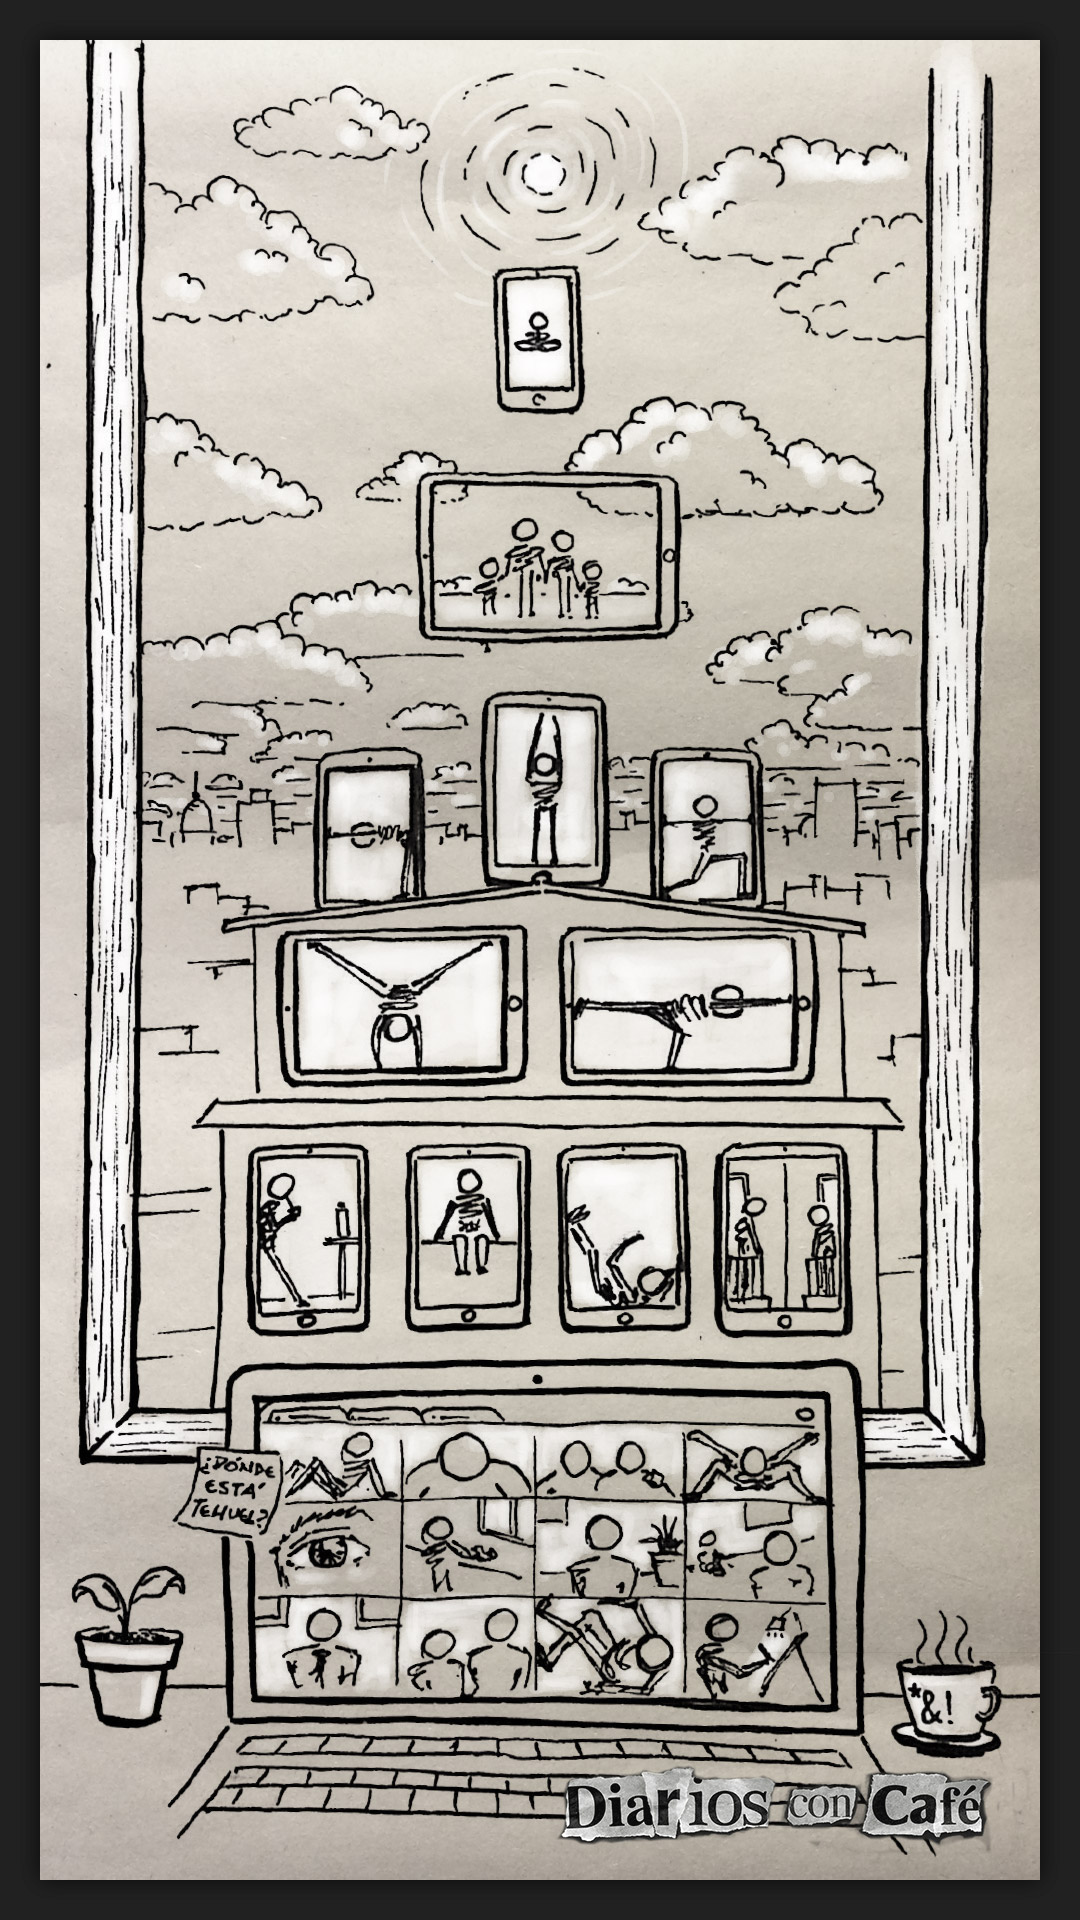 ¿DÓNDE
ESTÁ
TEHUEL?
*&!
Diarios con Café